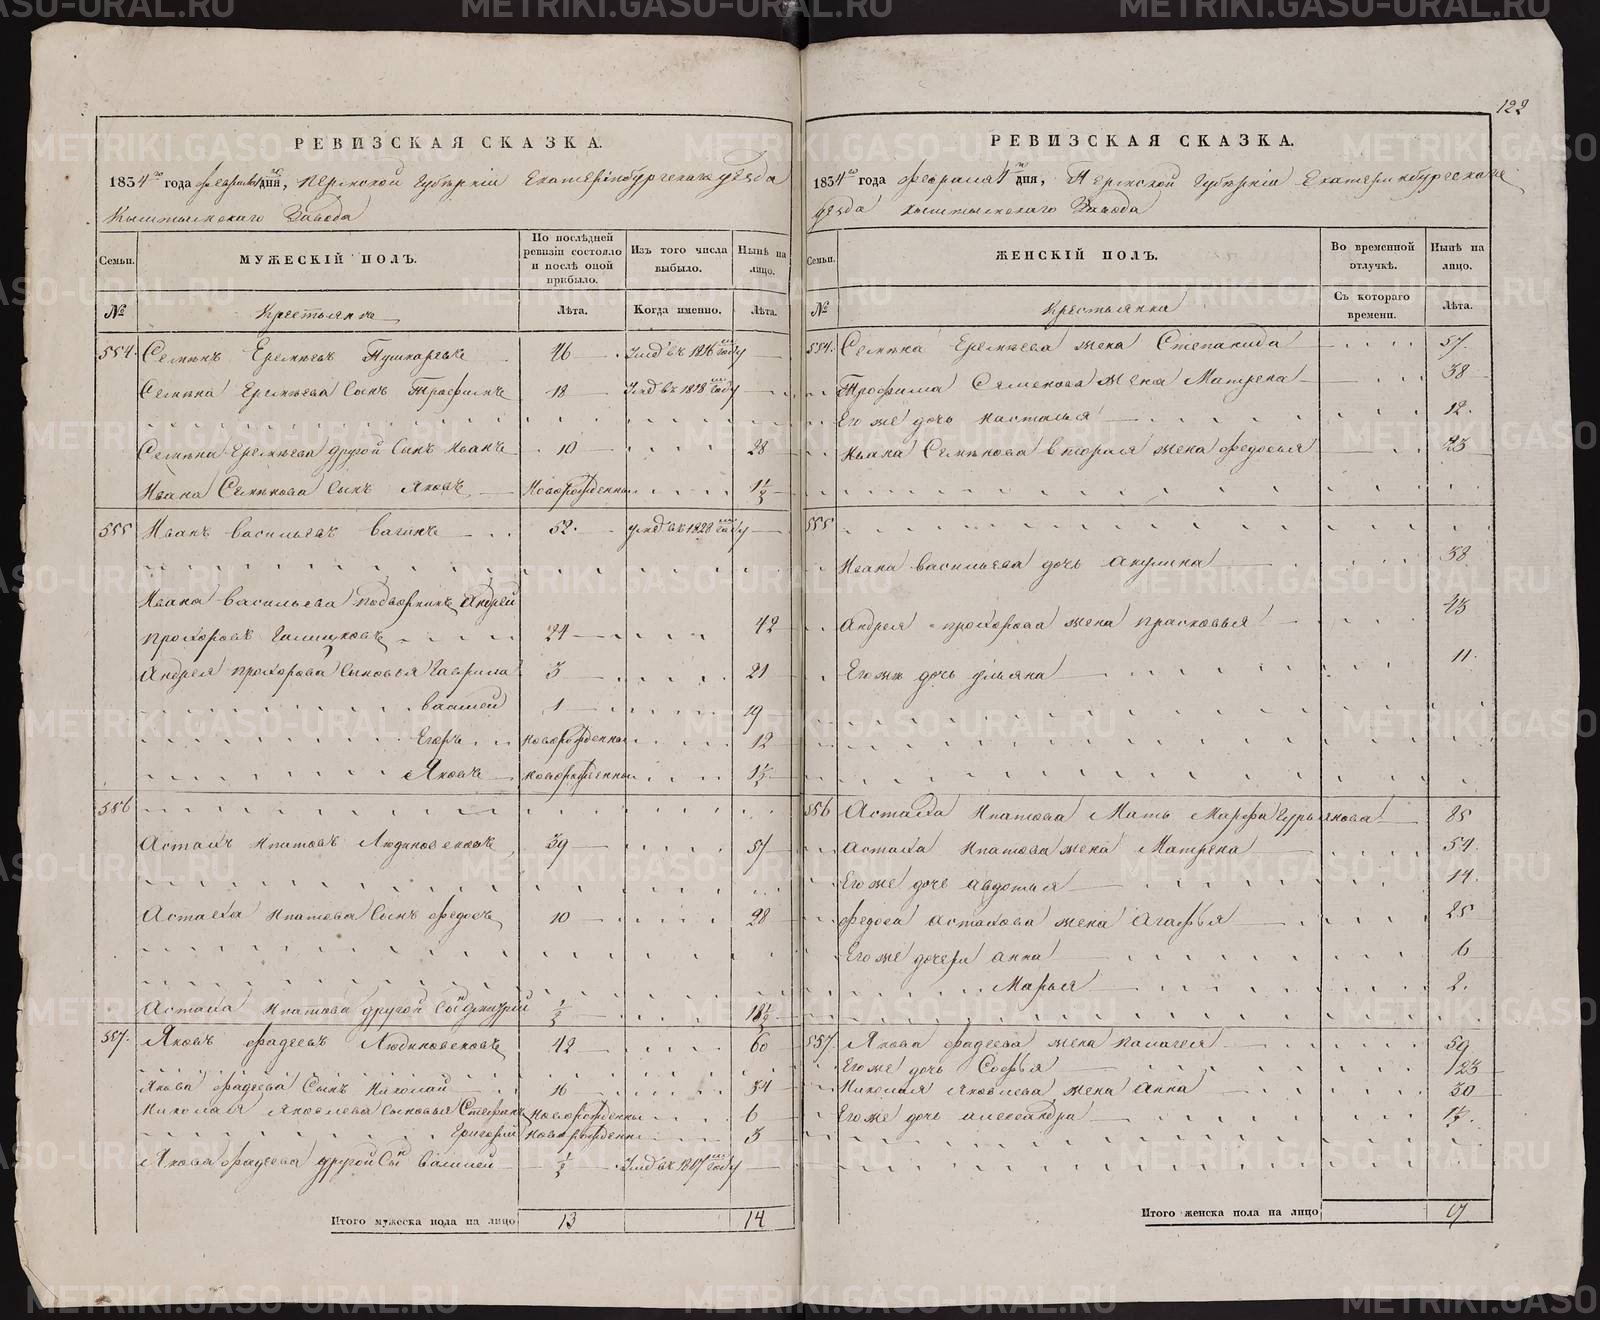 122
РЕВИЗСКАЯ СКАЗКА.
1834го года февраля дня, Пермской Губерніи Екатеринбургскаго уѣзда
Кыштымскаго Завода
Семьи. МУЖЕСКІЙ ПОЛЪ. По послѣдней ревизіи состояло и послѣ оной прибыло. Изъ того числа выбыло. Нынѣ на лицо.
№ Крестьяне Лѣта. Когда именно. Лѣта.
554. Семенъ Еремѣевъ Пушкаревъ 46 Умъ въ 1816 году
Семена Еремѣева сынъ Трофимъ 18 Умъ въ 1818 году
Семена Еремѣева другой сынъ Иванъ 10 28
Ивана Семенова сынъ Яковъ Новорожденны 1 1/2
555 Иванъ Васильевъ Вагинъ 52. умеръ въ 1828 году
Ивана Васильева подворникъ Андрей
Прохоровъ 24 42
Андрея Прохорова сыновья Гаврила 3 21
Василей 1 19
Егоръ новорожденны 12
Яковъ новорожденны 1 1/2
556
Астахъ Ипатовъ Людиновсковъ 39 57
Астаха Ипатова сынъ Федосъ 10 28
Астаха Ипатова другой сынъ Дмитрей 1/2 18 1/2
557. Яковъ Фадеевъ Людиновсковъ 42 60
Якова Фадеева сынъ Николай 16 34
Николая Яковлева сыновья Стефанъ Новорожденны 6
Григорей Новорожденны 3
Якова Фадеева другой сынъ Василей 1/2 Умъ въ 1817 году
Итого мужеска пола на лицо 13 14
РЕВИЗСКАЯ СКАЗКА.
1834го года февраля дня, Пермской Губерніи Екатеринбургскаго
уѣзда Кыштымскаго Завода
Семьи. ЖЕНСКІЙ ПОЛЪ. Во временной отлучкѣ. Нынѣ на лицо.
№ Крестьянки Съ котораго времени. Лѣта.
554. Семена Еремѣева жена Степанида 57
Трофима Семенова жена Матрена 38
Его же дочь Насталья 12.
Ивана Семенова вторая жена Федосья 23
555
Ивана Васильева дочь Акулина 38
Андрея Прохорова жена Прасковья 43
Его же дочь Ульяна 11.
556 Астаха Ипатова Мать Марфа Гурьянова 85
Астаха Ипатова жена Матрена 54.
Его же дочь Авдотья 14.
Федоса Астахова жена Агафья 25
Его же дочери Анна 6
Марья 2.
557 Якова Фадеева жена Палагея 59
Его же дочь Софья 123
Николая Яковлева жена Анна 30
Его же дочь Александра 1 1/2.
Итого женска пола на лицо 17